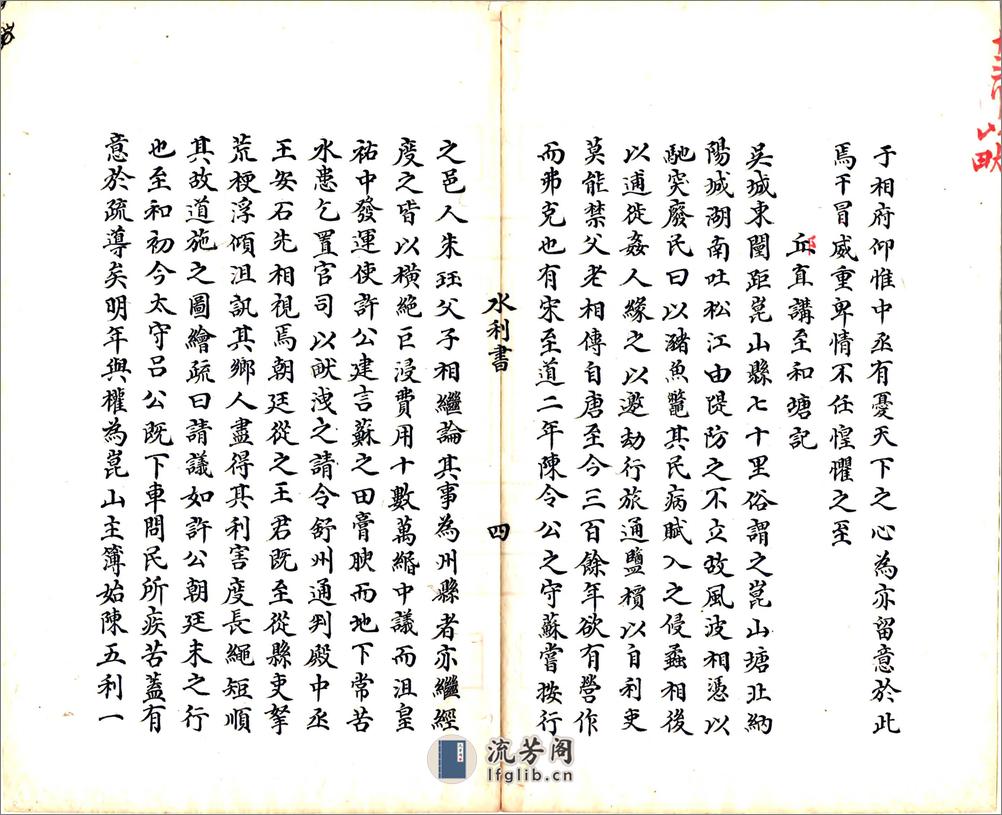 于相府仰惟中丞有憂天下之心為亦留意於此
焉干冒威重卑情不任惶懼之至
邱直講至和塘記
吳城東闉距崑山縣七十里俗謂之崑山塘北納
陽城湖南吐松江由隄防之不立故風波相憑以
馳突廢民田以瀦魚鼈其民病賦入之侵蟊相後
以逋徙姦人緣之以邀劫行旅通鹽檟以自利吏
莫能禁父老相傳自唐至今三百餘年欲有營作
而弗克也有宋至道二年陳令公之守蘇嘗按行
水利書
四
之邑人朱珏父子相繼論其事為州縣者亦繼經
度之皆以橫絕巨浸費用十數萬緡中議而沮皇
祐中發運使許公建言蘇之田膏腴而地下常苦
水患乞置官司以畎洩之請令舒州通判殿中丞
王安石先相視焉朝廷從之王君既至從縣吏拏
荒梗浮傾沮訊其鄉人盡得其利害度長繩短順
其故道施之圖繪疏曰請議如許公朝廷未之行
也至和初今太守呂公既下車問民所疾苦蓋有
意於疏導矣明年與權為崑山主簿始陳五利一
流芳阁
lfglib.cn